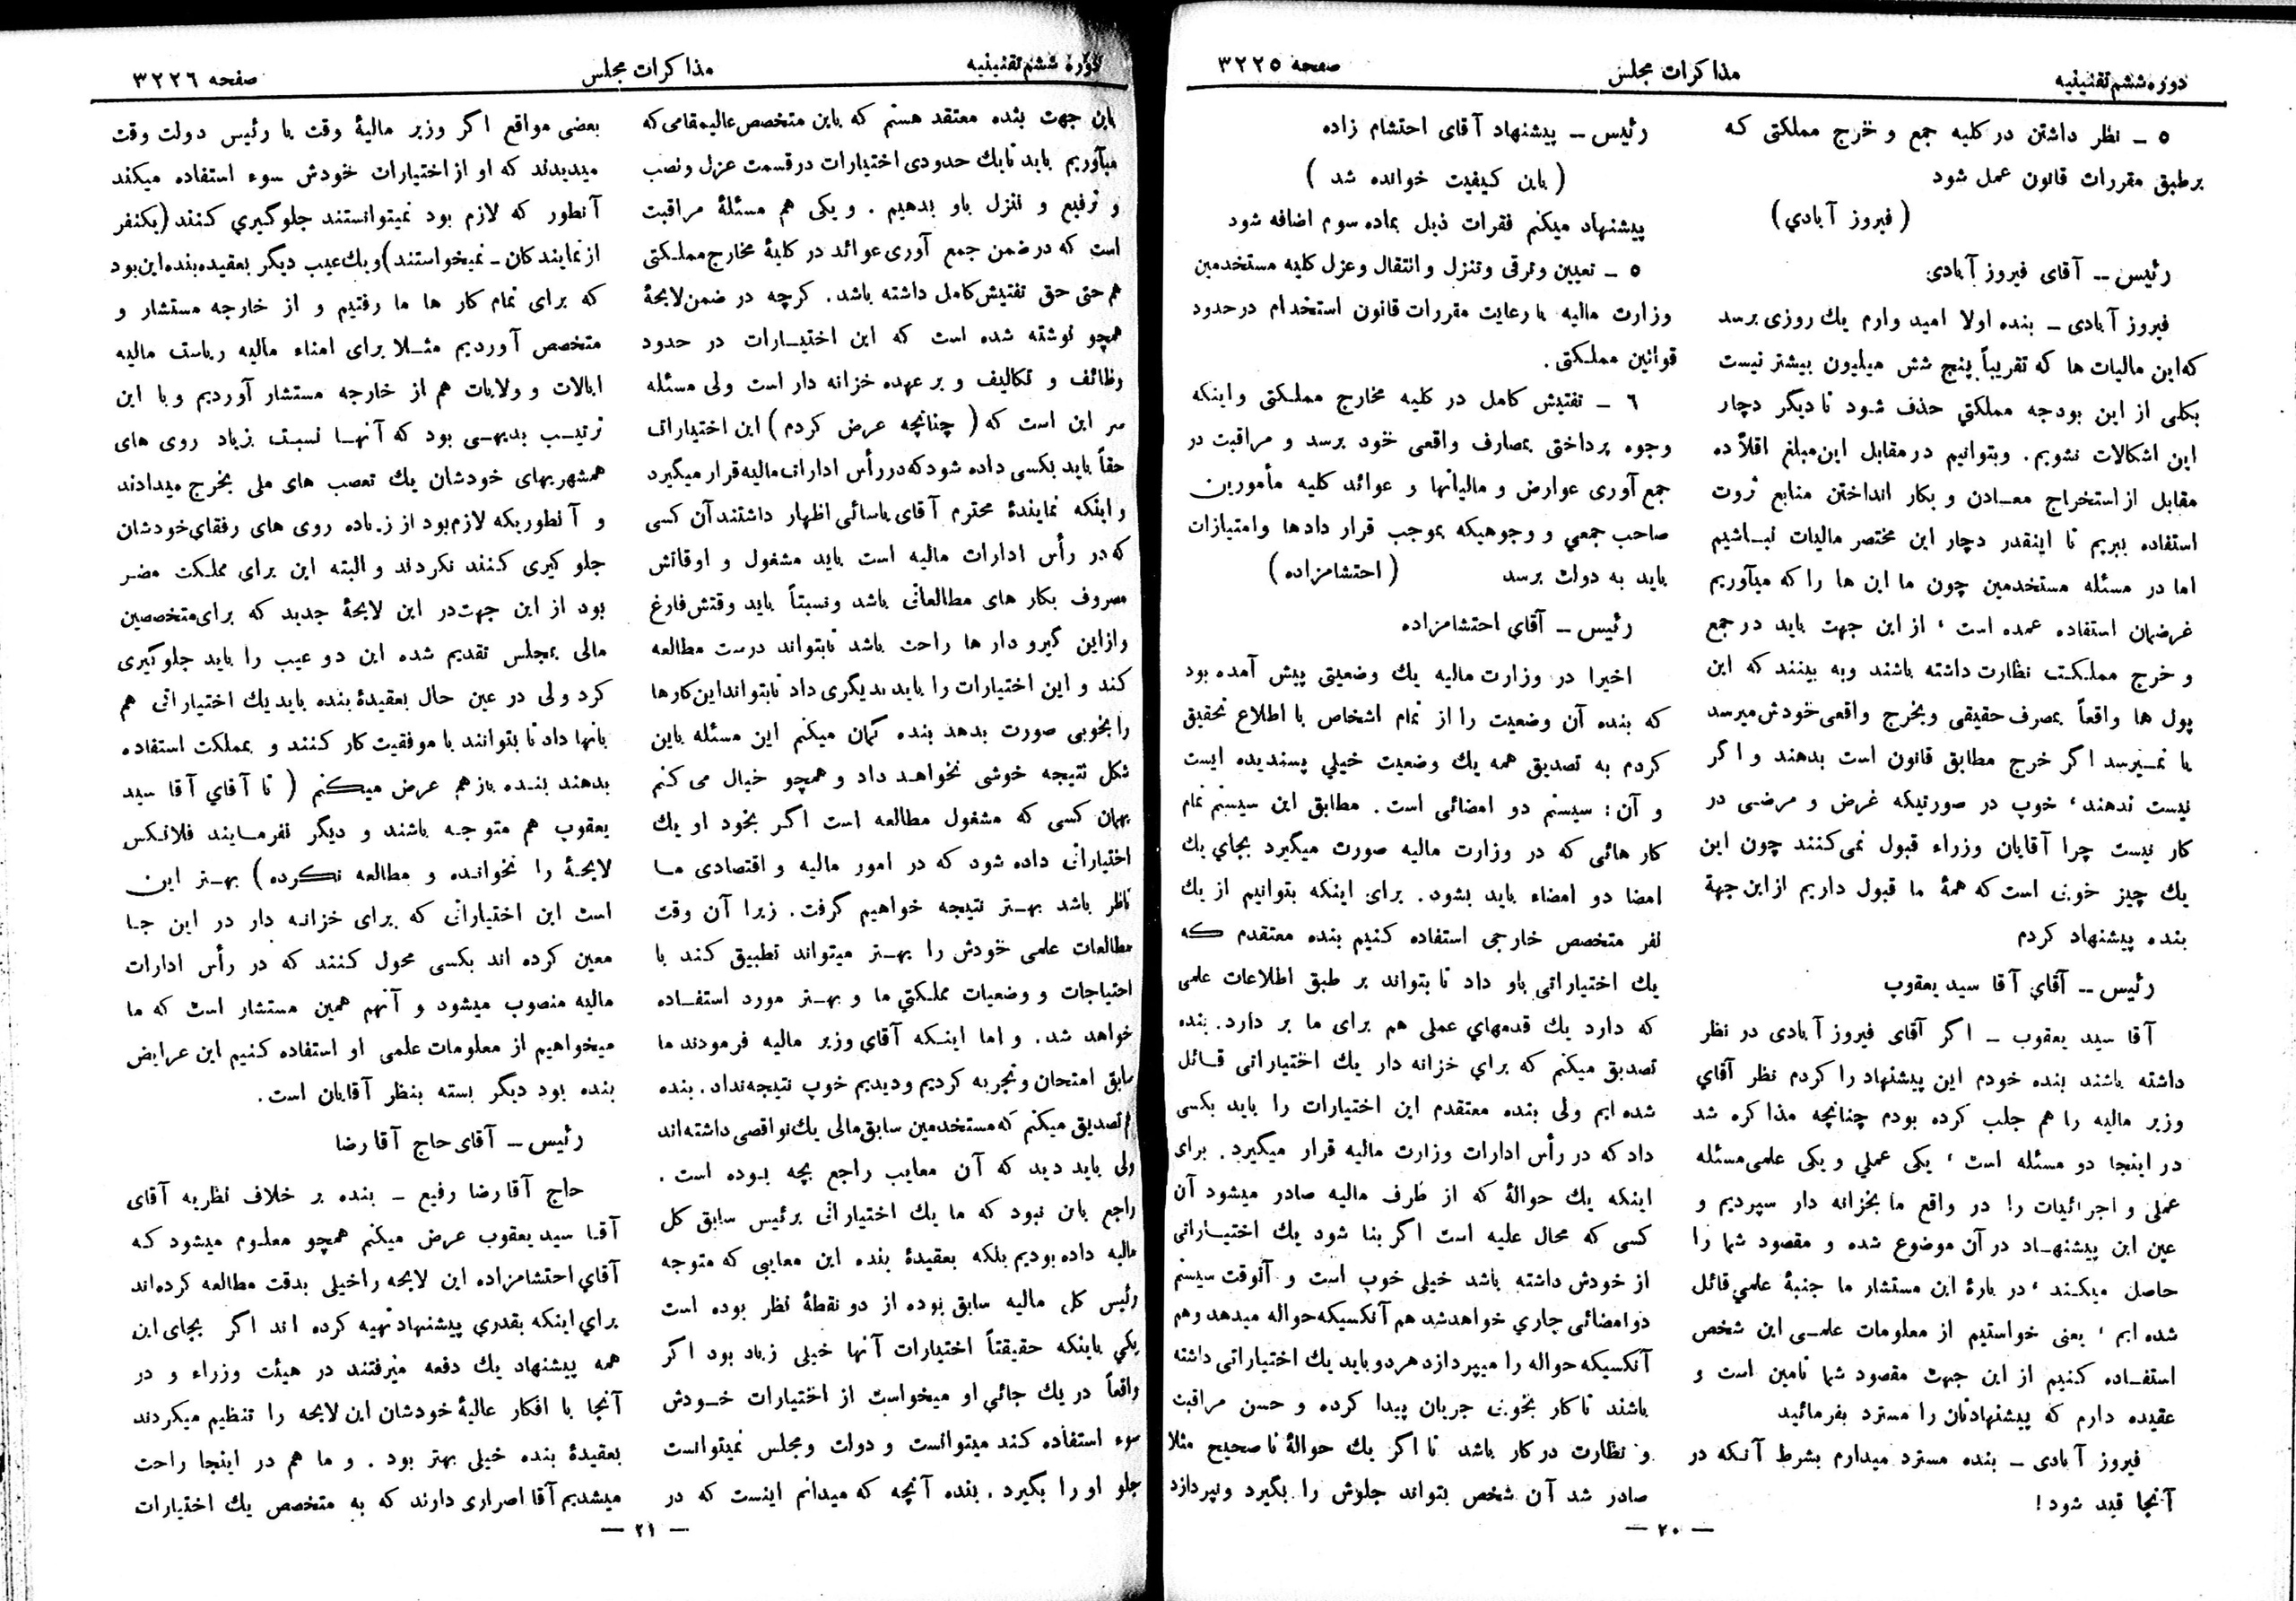 دوره ششم تقنینیه
مذاکرات مجلس
صفحه ٣٢٢٥
٥ ــ نظر داشتن در کلیه جمع و خرج مملکتی که
برطبق مقررات قانون عمل شود
(فیروز آبادي)
رئیس ــ آقای فیروز آبادی
فیروز آبادی ــ بنده اولا امید وارم یك روزی برسد
که این مالیات ها که تقریباً پنج شش میلیون بیشتر نیست
بکلی از این بودجه مملکتي حذف شود تا دیگر دچار
این اشکالات نشویم. وبتوانیم در مقابل این مبلغ اقلاً ده
مقابل از استخراج معـادن و بکار انداختن منابع ثروت
استفاده ببریم تا اینقدر دچار این مختصر مالیات نبـاشیم
اما در مسئله مستخدمین چون ما این ها را که میآوریم
غرضمان استفاده عمده است ، از این جهت باید در جمع
و خرج مملکت نظارت داشته باشند وبه بینند که این
پول ها واقعاً بمصرف حقیقی وبخرج واقعی خودش میرسد
یا نمیـرسد اگر خرج مطابق قانون است بدهند و اگر
نیست ندهند، خوب در صورتیکه غرض و مرضی در
کار نیست چرا آقایان وزراء قبول نمی کنند چون این
یك چیز خوبی است که همۀ ما قبول داریم از این جهة
بنده پیشنهاد کردم
رئیس ــ آقاي آقا سید یعقوب
آقا سید یعقوب ــ اگر آقای فیروز آبادی در نظر
داشته باشند بنده خودم این پیشنهاد را کردم نظر آقاي
وزیر مالیه را هم جلب کرده بودم چنانچه مذاکره شد
در اینجا دو مسئله است ، یکی عملي و یکی علمی مسئله
عملی و اجرائیات را در واقع ما بخزانه دار سپردیم و
عین این پیشنهـاد در آن موضوع شده و مقصود شما را
حاصل میکـند ، در بارۀ این مستشار ما جنبۀ علمي قائل
شده ایم ، یعنی خواستیم از معلومات علمـی این شخص
استفـاده کنیم از این جهت مقصود شما تامین است و
عقیده دارم که پیشنهادتان را مسترد بفرمائید
فیروز آبادی ــ بنده مسترد میدارم بشرط آنکه در
آنجا قید شود!
رئیس ــ پیشنهاد آقای احتشام زاده
(باین کیفیت خوانده شد)
پیشنهاد میکنم فقرات ذیل بماده سوم اضافه شود
٥ ــ تعیین وترقی وتنزل وانتقال وعزل کلیه مستخدمین
وزارت مالیه با رعایت مقررات قانون استخدام در حدود
قوانین مملکتی.
٦ ــ تفتیش کامل در کلیه مخارج مملکتی و اینکه
وجوه پرداختی بمصارف واقعی خود برسد و مراقبت در
جمع آوری عوارض و مالیاتها و عوائد کلیه مأمورین
صاحب جمعي و وجوهیکه بموجب قرار دادها وامتیازات
باید به دولت برسد (احتشامزاده)
رئیس ــ آقاي احتشامزاده
اخیرا در وزارت مالیه یك وضعیتی پیش آمده بود
که بنده آن وضعیت را از تمام اشخاص با اطلاع تحقیق
کردم به تصدیق همه یك وضعیت خیلي پسندیده ایست
و آن: سیستم دو امضائی است. مطابق این سیستم تمام
کار هائی که در وزارت مالیه صورت میگیرد بجاي یك
امضا دو امضاء باید بشود. برای اینکه بتوانیم از یك
نفر متخصص خارجی استفاده کنیم بنده معتقدم که
یك اختیاراتی باو داد تا بتواند بر طبق اطلاعات علمی
که دارد یك قدمهاي عملی هم برای ما بر دارد. بنده
تصدیق میکنم که براي خزانه دار یك اختیاراتی قـائل
شده ایم ولی بنده معتقدم این اختیارات را باید بکسی
داد که در رأس ادارات وزارت مالیه قرار میگیرد. برای
اینکه یك حوالۀ که از طرف مالیه صادر میشود آن
کسی که محال علیه است اگر بنا شود یك اختیـاراتی
از خودش داشته باشد خیلی خوب است و آنوقت سیستم
دو امضائی جاري خواهد شد هم آنکسیکه حواله میدهد وهم
آنکسیکه حواله را میپردازد هر دو باید یك اختیاراتی داشته
باشند تا کار بخوبی جریان پیدا کرده و حسن مراقبت
و نظارت در کار باشد تا اگر یك حوالۀ نا صحیح مثلا
صادر شد آن شخص بتواند جلوش را بگیرد ونپردازد
ــ ٢٠ ــ
دوره ششم تقنینیه
مذاکرات مجلس
صفحه ٣٢٢٦
باین جهت بنده معتقد هستم که باین متخصص عالیمقامی که
میآوریم باید تا یك حدودی اختیارات در قسمت عزل و نصب
و ترفیع و تنزل باو بدهیم. و یکی هم مسئلۀ مراقبت
است که در ضمن جمع آوری عوائد در کلیۀ مخارج مملکتی
هم حتی حق تفتیش کامل داشته باشد. گرچه در ضمن لایحۀ
همچو نوشته شده است که این اختیـارات در حدود
وظائف و تکالیف و بر عهده خزانه دار است ولی مسئله
سر این است که (چنانچه عرض کردم) این اختیاراتی
حقاً باید بکسی داده شود که در رأس ادارات مالیه قرار میگیرد
و اینکه نمایندۀ محترم آقای یاسائی اظهار داشتند آن کسی
که در رأس ادارات مالیه است باید مشغول و اوقاتش
مصروف بکار های مطالعاتی باشد ونسبتاً باید وقتش فارغ
و از این گیرو دار ها راحت باشد تا بتواند درست مطالعه
کند و این اختیارات را باید بدیگری داد تا بتواند این کارها
را بخوبی صورت بدهد بنده گمان میکنم این مسئله باین
شکل نتیجه خوشی نخواهـد داد و همچو خیال می کنم
بهمان کسی که مشغول مطالعه است اگر بخود او یك
اختیاراتی داده شود که در امور مالیه و اقتصادی مـا
ناظر باشد بهـتر نتیجه خواهیم گرفت. زیرا آن وقت
مطالعات علمی خودش را بهـتر میتواند تطبیق کند با
احتیاجات و وضعیات مملکتي ما و بهـتر مورد استفـاده
خواهد شد. و اما اینـکه آقاي وزیر مالیه فرمودند ما
سابق امتحان و تجربه کردیم و دیدیم خوب نتیجه نداد. بنده
تصدیق میکنم که مستخدمین سابق مالی یك نواقصی داشته اند
ولی باید دید که آن معایب راجع بچه بـوده است.
راجع باین نبود که ما یك اختیاراتی برئیس سابق کل
مالیه داده بودیم بلکه بعقیدۀ بنده این معایبی که متوجه
رئیس کل مالیه سابق بوده از دو نقطۀ نظر بوده است
یکي باینکه حقیقتاً اختیارات آنها خیلی زیاد بود اگر
واقعاً در یك جائی او میخواست از اختیارات خـودش
سوء استفاده کند میتوانست و دولت ومجلس نمیتوانست
جلو او را بگیرد. بنده آنچه که میدانم اینست که در
بعضی مواقع اگر وزیر مالیۀ وقت یا رئیس دولت وقت
میدیدند که او از اختیارات خودش سوء استفاده میکند
آنطور که لازم بود نمیتوانستند جلوگیري کنند (یکنفر
از نمایندگان ــ نمیخواستند) ویك عیب دیگر بعقیده بنده این بود
که برای تمام کار ها ما رفتیم و از خارجه مستشار و
متخصص آوردیم مثـلا برای امناء مالیه ریاست مالیه
ایالات و ولایات هم از خارجه مستشار آوردیم و با این
ترتیـب بدیهـی بود که آنهـا نسبت بزیاد روی های
همشهریهای خودشان یك تعصب های ملی بخرج میدادند
و آنطوریکه لازم بود از زیاده روی های رفقای خودشان
جلو گیری کـنند نکردند و البته این برای مملکت مضـر
بود از این جهت در این لایحۀ جدید که برای متخصصین
مالی بمجلس تقدیم شده این دو عیب را باید جلو گیری
کرد ولی در عین حال بعقیدۀ بنده باید یك اختیاراتی هم
بآنها داد تا بتوانند با موفقیت کار کنند و بمملکت استفاده
بدهند بنـده باز هم عرض میکنم (تا آقاي آقا سید
یعقوب هم متوجـه باشند و دیگر نفرمـایند فلانکس
لایحۀ را نخوانـده و مطالعه نکرده) بهـتر این
است این اختیاراتی که برای خزانه دار در این جـا
معین کرده اند بکسی محول کنند که در رأس ادارات
مالیه منصوب میشود و آنهم همین مستشار است که ما
میخواهیم از معلومات علمی او استفاده کنیم این عرایض
بنده بود دیگر بسته بنظر آقایان است.
رئیس ــ آقای حاج آقا رضا
حاج آقا رضا رفیع ــ بنده بر خلاف نظریه آقای
آقا سید یعقوب عرض میکنم همچو معلـوم میشود که
آقاي احتشامزاده این لایحه را خیلی بدقت مطالعه کرده اند
براي اینکه بقدري پیشنهاد تهیه کرده اند اگر بجای این
همه پیشنهاد یك دفعه میرفتند در هیئت وزراء و در
آنجا با افکار عالیۀ خودشان این لایحه را تنظیم میکردند
بعقیدۀ بنده خیلی بهتر بود. و ما هم در اینجا راحت
میشدیم آقا اصراری دارند که به متخصص یك اختیارات
ــ ٢١ ــ